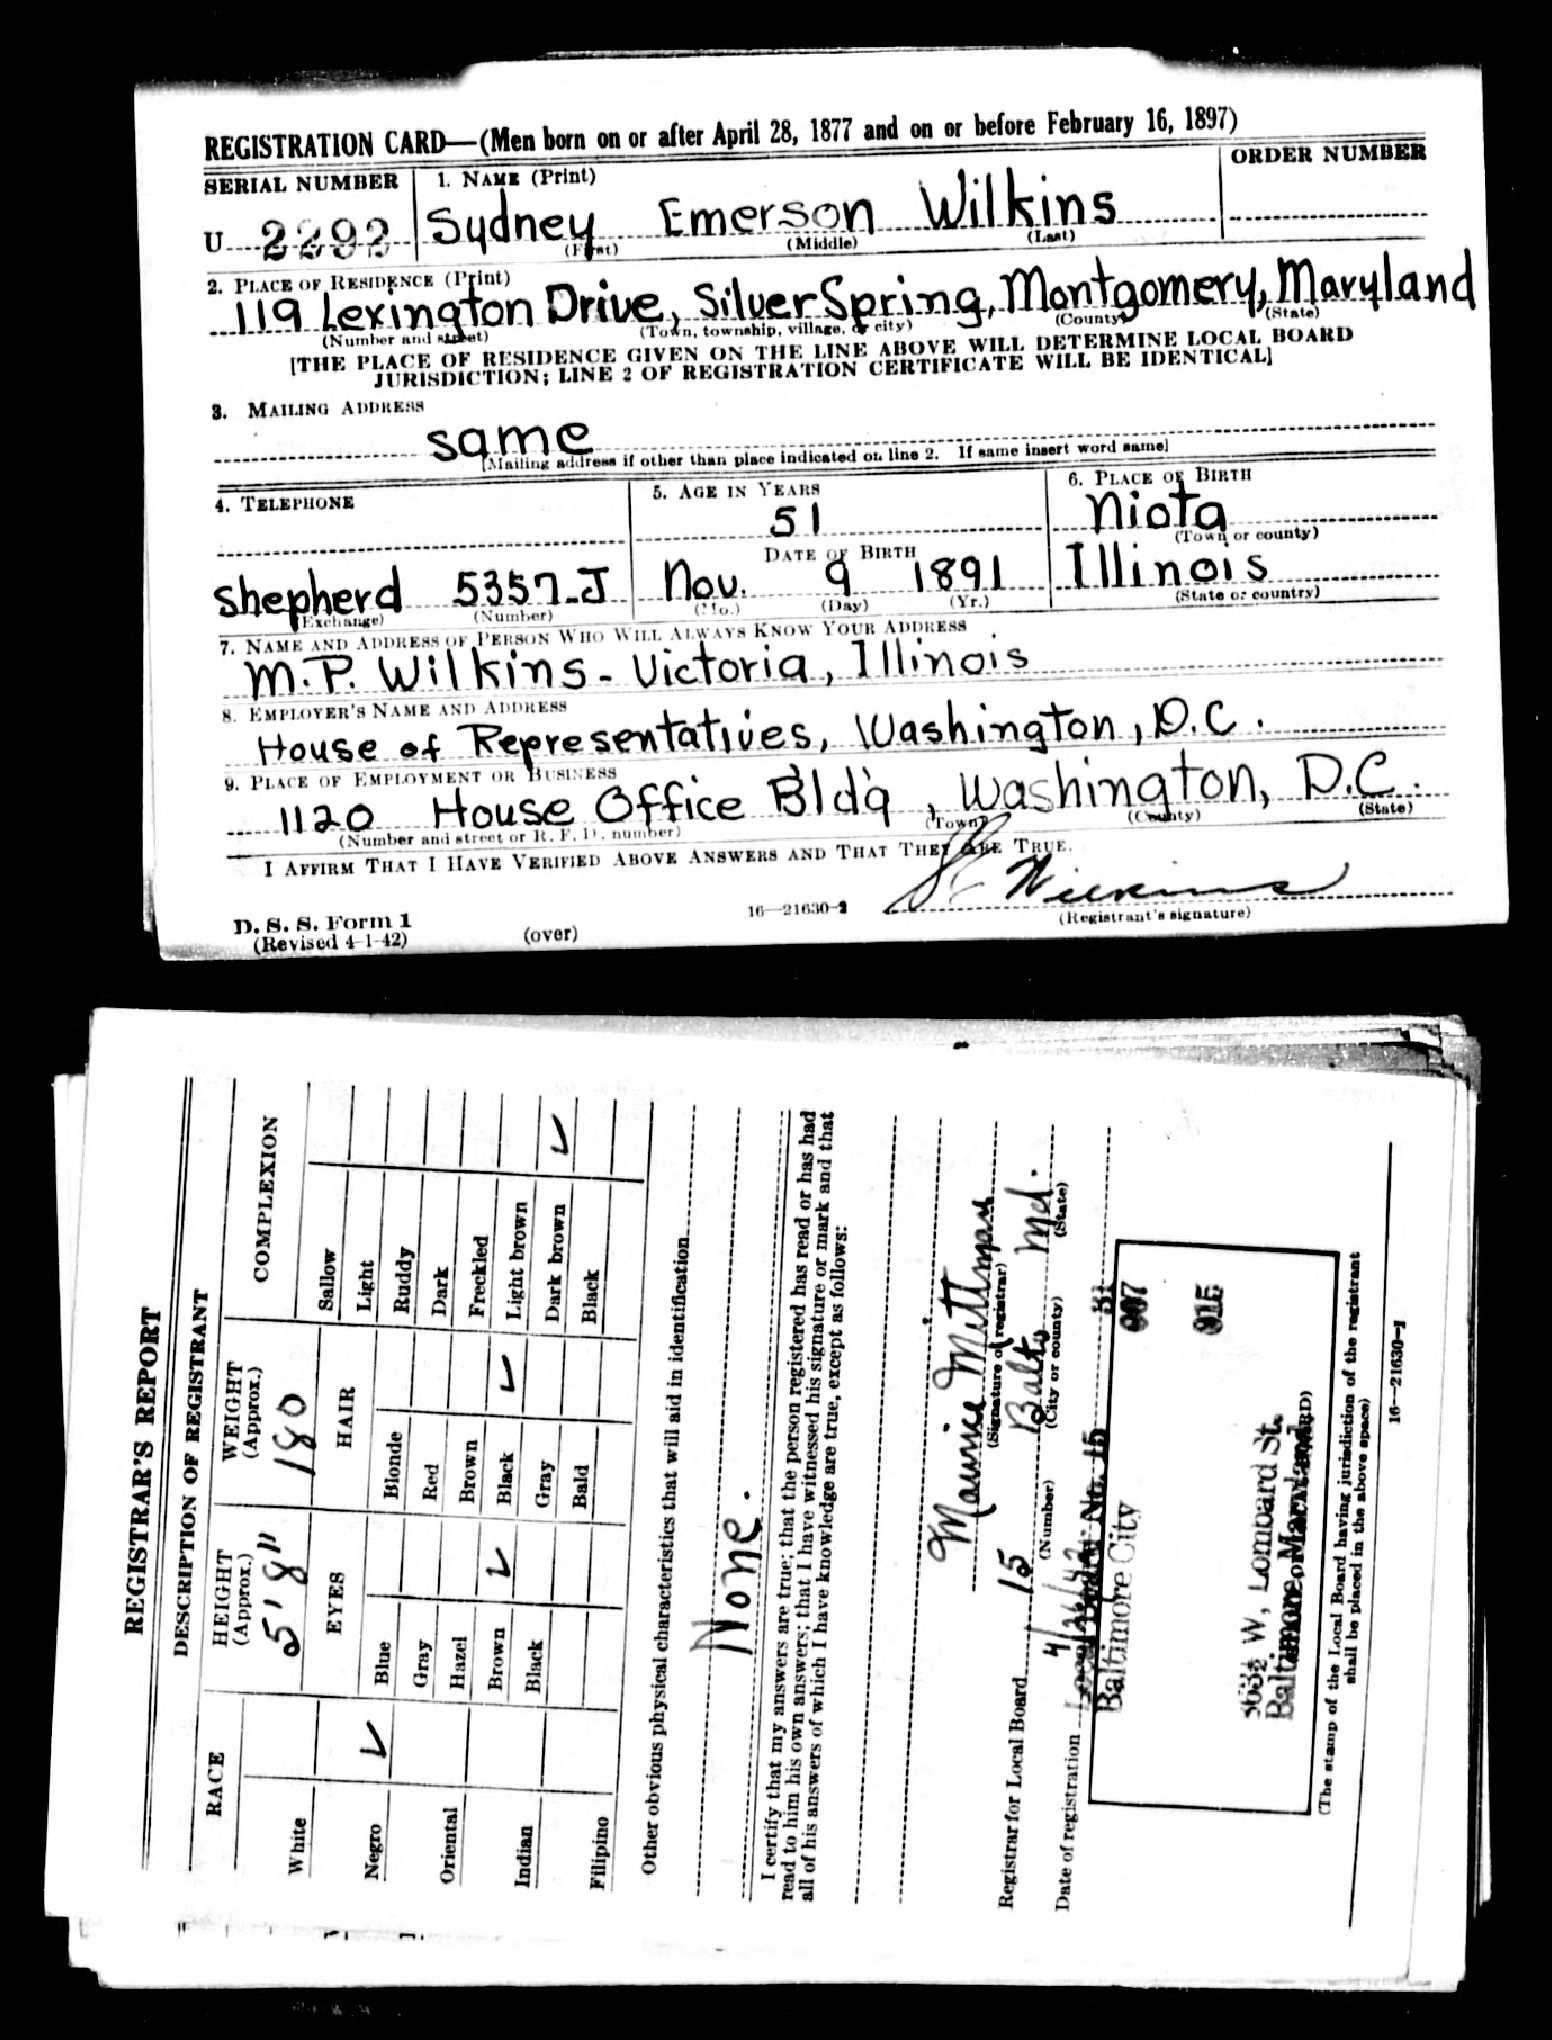 REGISTRATION CARD—(Men born on or after April 28, 1877 and on or before February 16, 1897)
SERIAL NUMBER
1. NAME (Print)
ORDER NUMBER
U 2292
Sydney Emerson Wilkins
(First) (Middle) (Last)
2. PLACE OF RESIDENCE (Print)
119 Lexington Drive, Silver Spring, Montgomery, Maryland
(Number and street) (Town, township, village, or city) (County) (State)
[THE PLACE OF RESIDENCE GIVEN ON THE LINE ABOVE WILL DETERMINE LOCAL BOARD
JURISDICTION; LINE 2 OF REGISTRATION CERTIFICATE WILL BE IDENTICAL]
3. MAILING ADDRESS
same
[Mailing address if other than place indicated on line 2. If same insert word same]
4. TELEPHONE
5. AGE IN YEARS
6. PLACE OF BIRTH
51
Niota
(Town or county)
DATE OF BIRTH
Shepherd 5357-J
Nov. 9 1891
Illinois
(Exchange) (Number)
(Mo.) (Day) (Yr.)
(State or country)
7. NAME AND ADDRESS OF PERSON WHO WILL ALWAYS KNOW YOUR ADDRESS
M.P. Wilkins - Victoria, Illinois
8. EMPLOYER'S NAME AND ADDRESS
House of Representatives, Washington, D.C.
9. PLACE OF EMPLOYMENT OR BUSINESS
1120 House Office Bld'g, Washington, D.C.
(Number and street or R. F. D. number) (Town) (County) (State)
I AFFIRM THAT I HAVE VERIFIED ABOVE ANSWERS AND THAT THEY ARE TRUE.
S E Wilkins
(Registrant's signature)
D. S. S. Form 1
(Revised 4-1-42)
(over)
16—21630-2
REGISTRAR'S REPORT
DESCRIPTION OF REGISTRANT
RACE
HEIGHT
(Approx.)
WEIGHT
(Approx.)
COMPLEXION
5' 8"
180
EYES
HAIR
White
Negro ✓
Oriental
Indian
Filipino
Blue
Gray
Hazel
Brown ✓
Black
Blonde
Red
Brown
Black ✓
Gray
Bald
Sallow
Light
Ruddy
Dark
Freckled
Light brown
Dark brown ✓
Black
Other obvious physical characteristics that will aid in identification
None.
I certify that my answers are true; that the person registered has read or has had
read to him his own answers; that I have witnessed his signature or mark and that
all of his answers of which I have knowledge are true, except as follows:
(Signature of registrar)
Registrar for Local Board 15 Balto Md.
(Number) (City or county) (State)
Date of registration 4/26/42
Local Board No. 15
Baltimore City
W. Lombard St.
Baltimore, Maryland
(The stamp of the Local Board having jurisdiction of the registrant
shall be placed in the above space)
16—21630-1